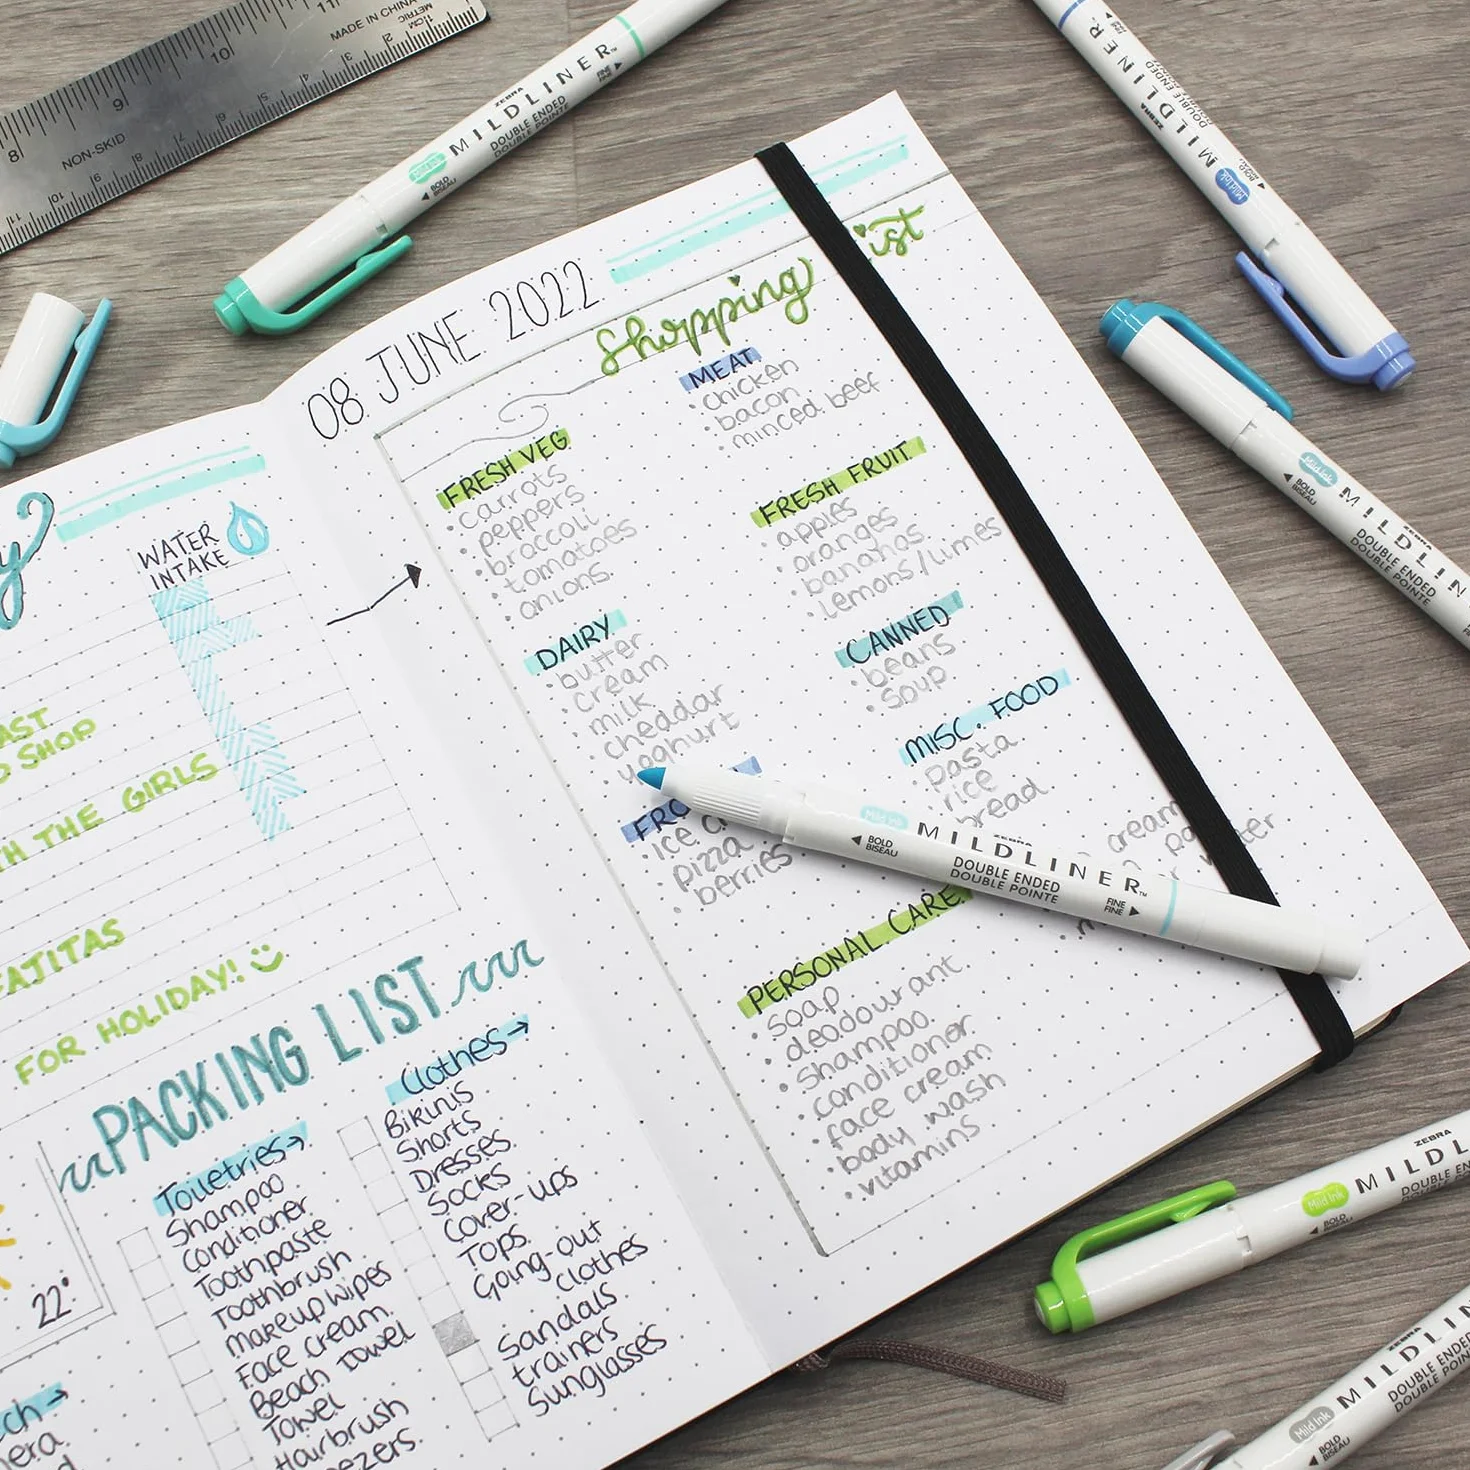 8 9 10 11
MADE IN CHINA
METRIC
1CM
2
3
4
5
6
7
8
9
10
11
NON-SKID
ZEBRA
MILDLINER™
DOUBLE ENDED
DOUBLE POINTE
FINE
FINE
Mild Ink
BOLD
BISEAU
ZEBRA
MILDLINER
DOUBLE ENDED
DOUBLE POINTE
Mild Ink
BOLD
BISEAU
Mild Ink
BOLD
BISEAU
ZEBRA
DOUBLE ENDED
DOUBLE POINTE
08 JUNE 2022
Shopping
MEAT
• chicken
• bacon
• minced beef
FRESH VEG
• carrots
• peppers
• braccoli
• tomatoes
• onions
FRESH FRUIT
• apples
• oranges
• bananas
• lemons/limes
DAIRY
• butter
• cream
• milk
• cheddar
• yoghurt
CANNED
• beans
• soup
MISC. FOOD
• pasta
• rice
• bread
cream
• ice
• pizza
• berries
Mild Ink
BOLD
BISEAU
ZEBRA
MILDLINER™
DOUBLE ENDED
DOUBLE POINTE
FINE
FINE
PERSONAL CARE
• soap
• deodourant
• shampoo
• conditioner
• face cream
• body wash
• vitamins
WATER
INTAKE
SHOP
THE GIRLS
FOR HOLIDAY!
PACKING LIST
Toiletries→
Shampoo
Conditioner
Toothpaste
Toothbrush
Makeup Wipes
Face Cream
Beach Towel
Towel
Hairbrush
Clothes→
Bikinis
Shorts
Dresses
Socks
Cover-ups
Tops
Going-out
Clothes
Sandals
trainers
Sunglasses
22°
ZEBRA
Mild Ink
BOLD
BISEAU
ZEBRA
Mild Ink
BOLD
BISEAU
DOUBLE POINTE